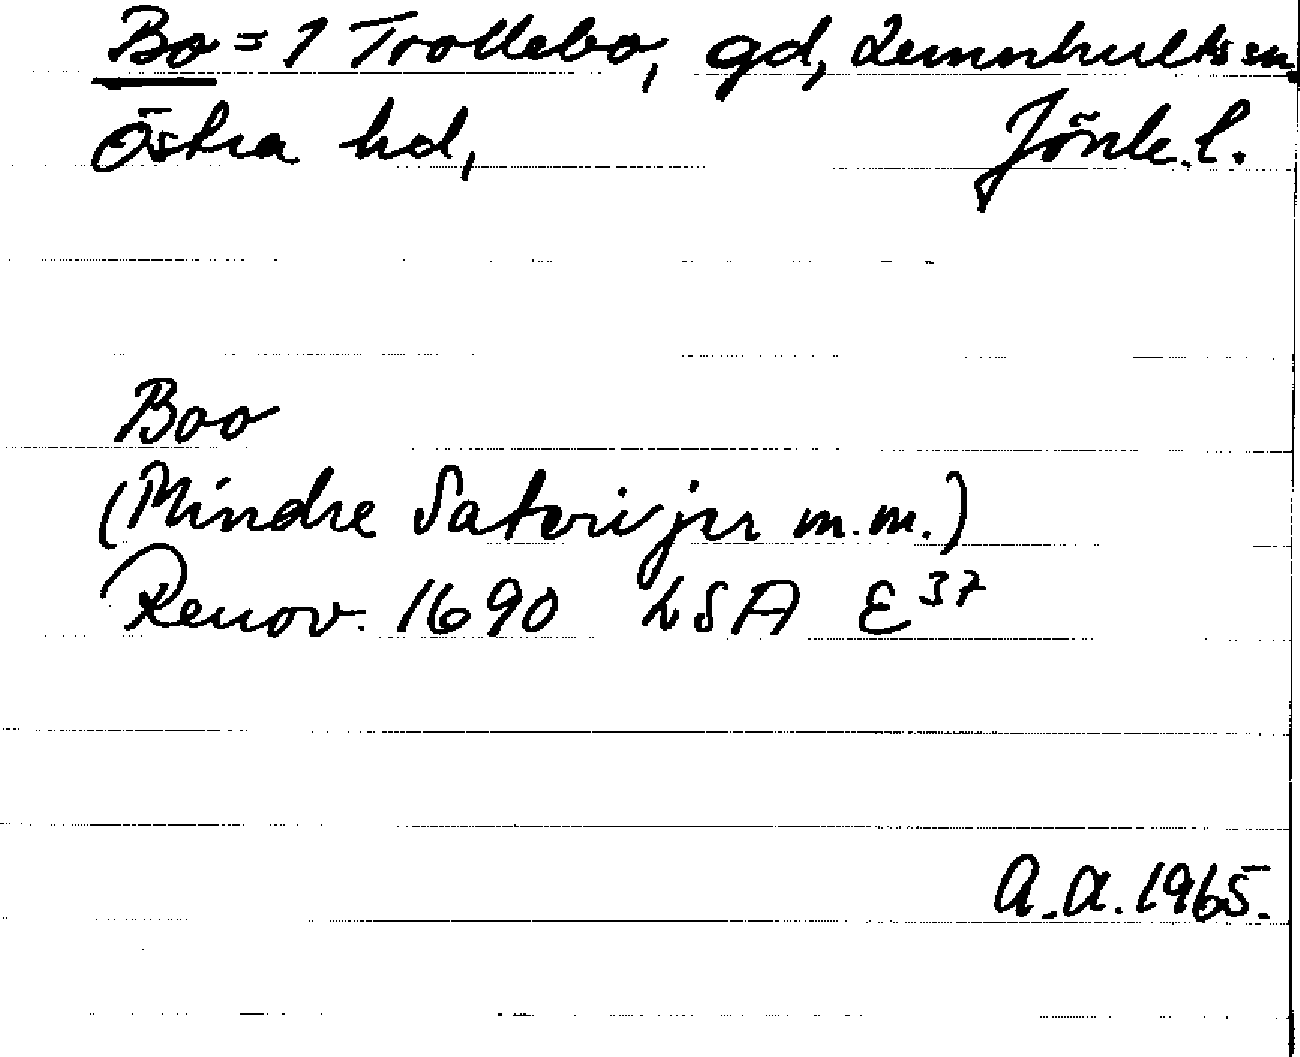 Bo = 1 Trollebo, gd, Lemnhults sn.
Östra hd, Jönk. l.
Boo
(Mindre Saterijer m.m.)
Renov. 1690 LSA E 37
A.A. 1965.